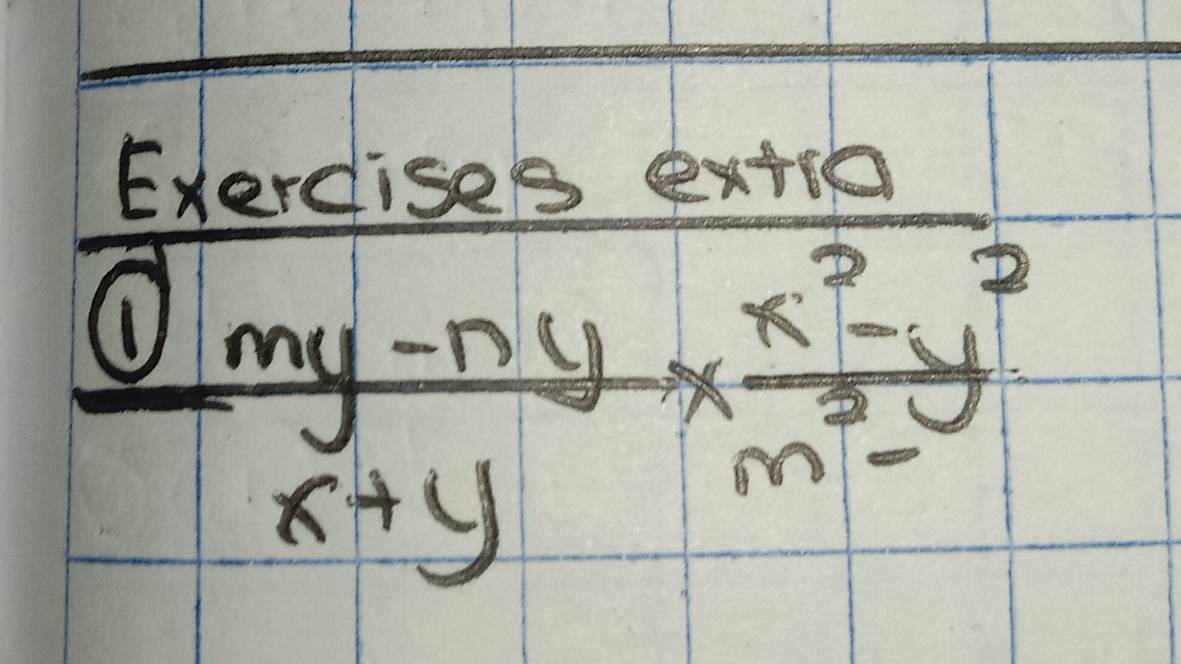 Exercises extra
① my - ny × x² - y²
x + y m² -